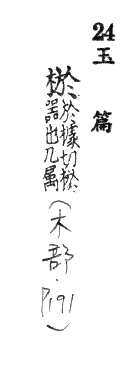 24 玉篇
棜 於據切棜
器也几屬
(木部·P191)